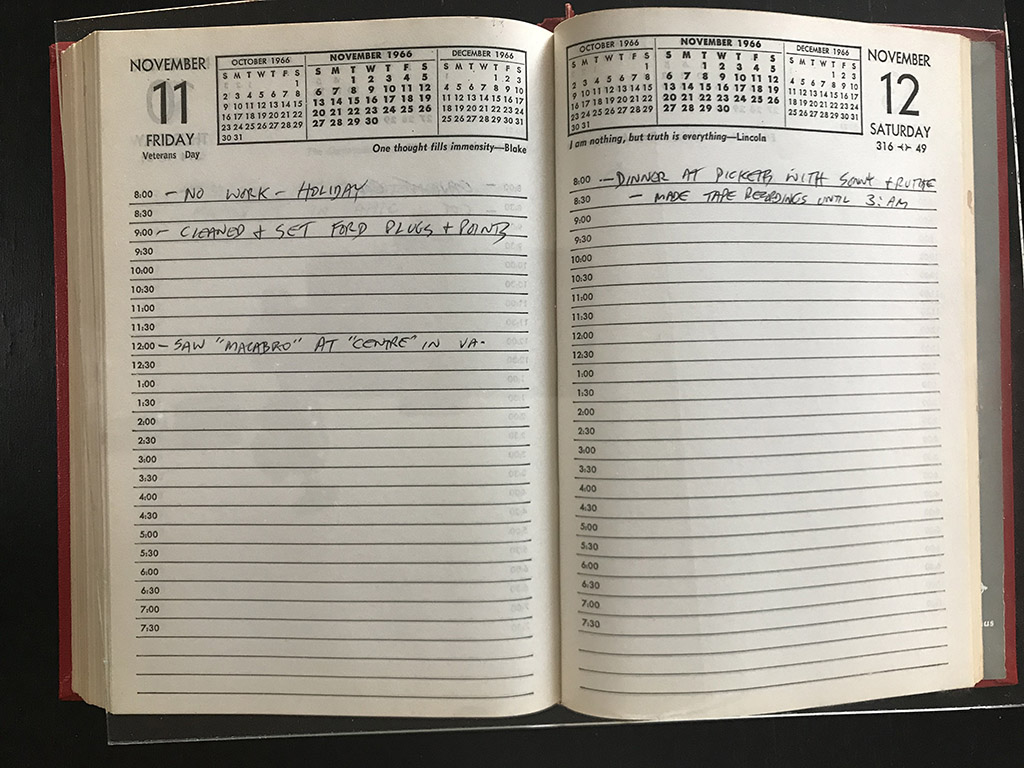 NOVEMBER
11
FRIDAY
Veterans Day
OCTOBER 1966
S M T W T F S
1
2 3 4 5 6 7 8
9 10 11 12 13 14 15
16 17 18 19 20 21 22
23 24 25 26 27 28 29
30 31
NOVEMBER 1966
S M T W T F S
1 2 3 4 5
6 7 8 9 10 11 12
13 14 15 16 17 18 19
20 21 22 23 24 25 26
27 28 29 30
DECEMBER 1966
S M T W T F S
1 2 3
4 5 6 7 8 9 10
11 12 13 14 15 16 17
18 19 20 21 22 23 24
25 26 27 28 29 30 31
One thought fills immensity—Blake
8:00 — NO WORK — HOLIDAY
8:30
9:00 — CLEANED + SET FORD PLUGS + POINTS
9:30
10:00
10:30
11:00
11:30
12:00 — SAW "MACABRO" AT "CENTRE" IN VA.
12:30
1:00
1:30
2:00
2:30
3:00
3:30
4:00
4:30
5:00
5:30
6:00
6:30
7:00
7:30
OCTOBER 1966
S M T W T F S
1
2 3 4 5 6 7 8
9 10 11 12 13 14 15
16 17 18 19 20 21 22
23 24 25 26 27 28 29
30 31
NOVEMBER 1966
S M T W T F S
1 2 3 4 5
6 7 8 9 10 11 12
13 14 15 16 17 18 19
20 21 22 23 24 25 26
27 28 29 30
DECEMBER 1966
S M T W T F S
1 2 3
4 5 6 7 8 9 10
11 12 13 14 15 16 17
18 19 20 21 22 23 24
25 26 27 28 29 30 31
NOVEMBER
12
SATURDAY
316 49
I am nothing, but truth is everything—Lincoln
8:00 — DINNER AT PICKETS WITH +
8:30 — MADE TAPE RECORDINGS UNTIL 3: AM
9:00
9:30
10:00
10:30
11:00
11:30
12:00
12:30
1:00
1:30
2:00
2:30
3:00
3:30
4:00
4:30
5:00
5:30
6:00
6:30
7:00
7:30